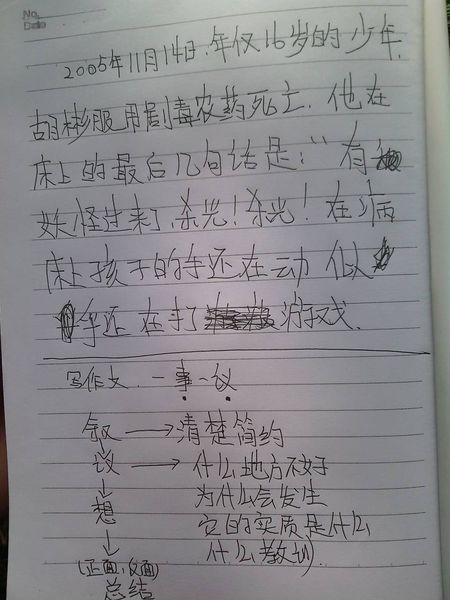 No.
Date
2005年11月14日.年仅16岁的少年.
胡彬服用剧毒农药死亡.他在
床上的最后几句话是:"有
妖怪过来了,杀光!杀光!在病
床上孩子的手还在动 似
手还在打 游戏.
写作文.一事一议
叙 → 清楚简约
议 → 什么地方不好
为什么会发生
想 它的实质是什么
什么教训)
(正面,反面)
总结